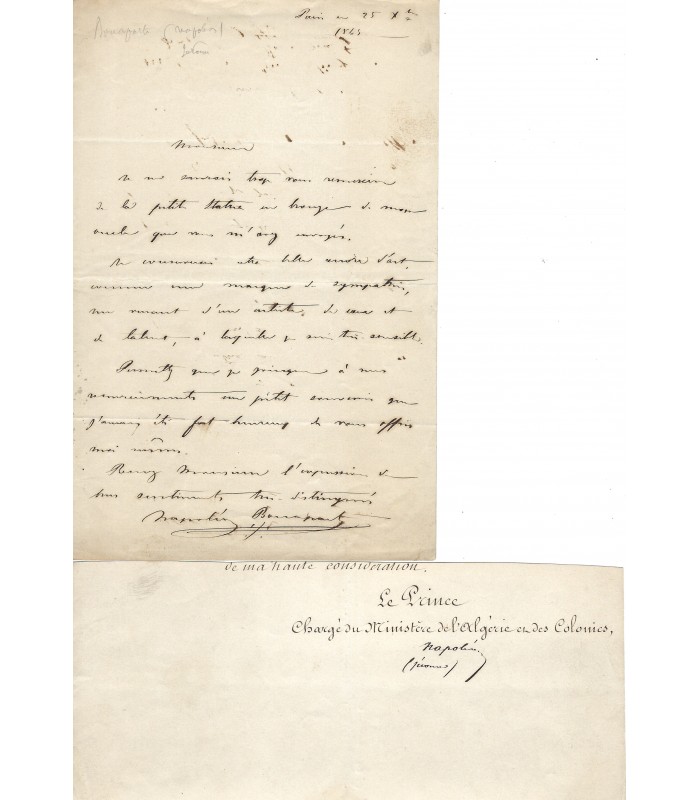 Bonaparte (Napoléon)
Jérôme
Paris ce 25 Xbre
186
Monsieur
Je ne saurais trop vous remercier
de la petite statue en bronze de mon
oncle que vous m'avez envoyée.
Je conserverai votre belle œuvre d'art,
comme une marque de sympathie,
me venant d'un artiste, de cœur et
de talent, à laquelle je suis très sensible.
Permettez que je joigne à mes
remerciements un petit souvenir que
j'aurais été fort heureux de vous offrir
moi même.
Recevez Monsieur l'expression de
mes sentiments très distingués
Napoléon Bonaparte
de ma haute considération.
Le Prince
Chargé du Ministère de l'Algérie et des Colonies,
Napoléon
(Jérôme)